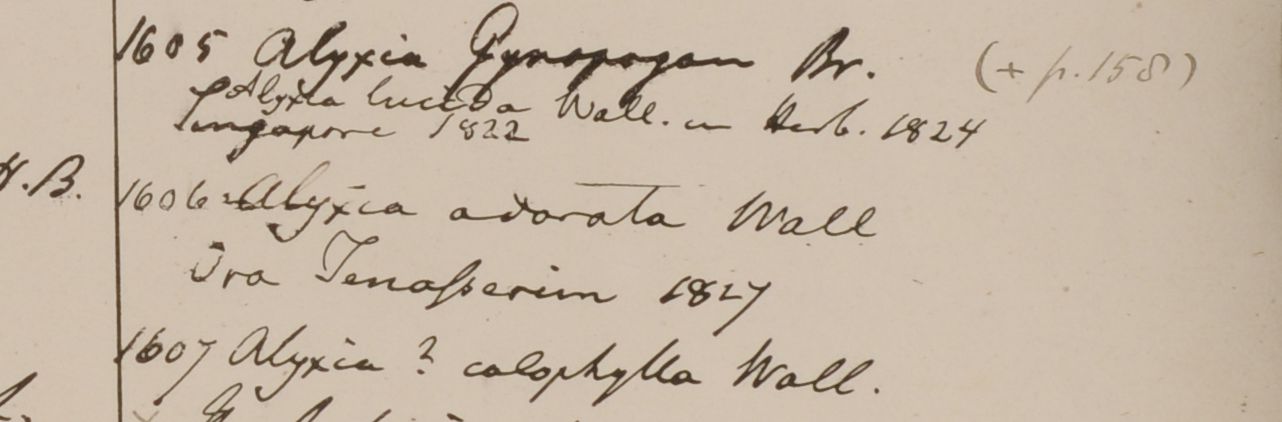 1605 Alyxia Gynopogon Br. (+ p. 158)
Alyxia lucida Wall. in Herb. 1824
Singapore 1822
H.B.
1606 Alyxia odorata Wall
Ora Tenasserim 1827
1607 Alyxia ? calophylla Wall.